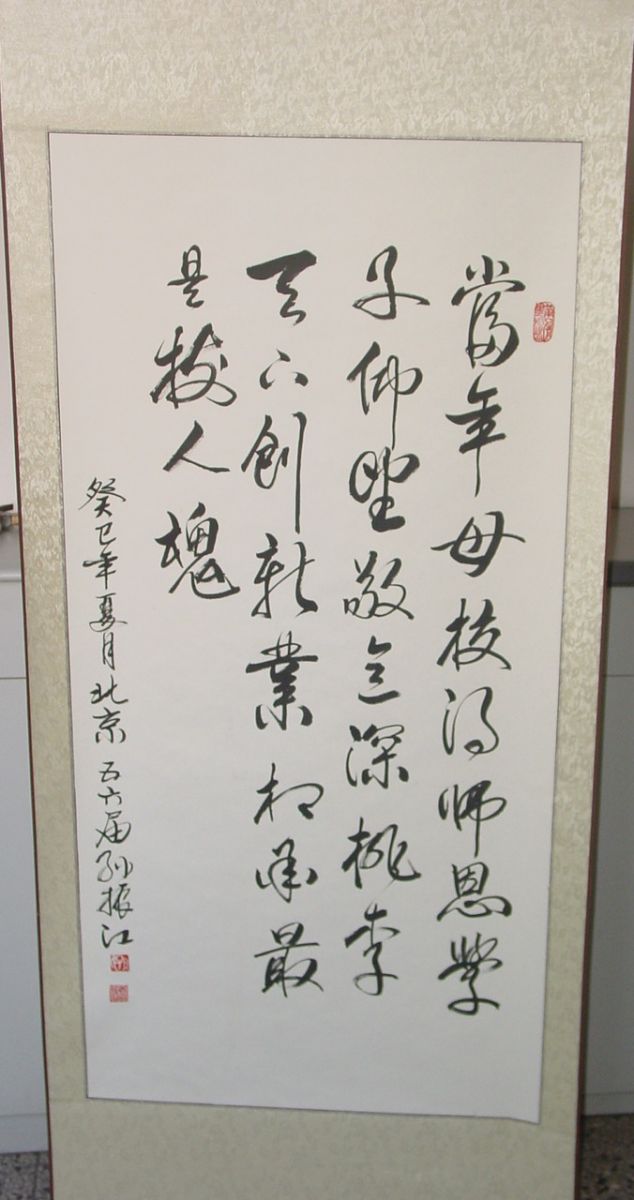 當年母校得師恩學
子仰望敬意深桃李
天下創新業相承最
是校人魂
癸巳年夏月北京 五六届孙振江